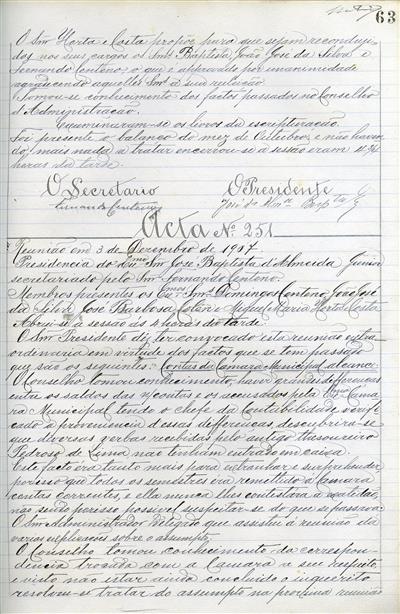 63
O Snr Horta e Costa propôz para que sejam reconduzi-
dos nos seus cargos os Snrs Baptista, João José da Silva e
Fernando Centeno; o que é approvado por unanimidade
agradecendo aquelles Snrs a sua reeleição.
Tomou-se conhecimento dos factos passados no Conselho
d'Administração.
Examinaram-se os livros da escripturação.
Foi presente o balanço do mez de Outubro, e não haven-
do mais nada a tratar encerrou-se a sessão eram 4 3/4
horas da tarde.
O Secretario O Presidente
Fernando Centeno José da
Acta No. 251
Reunião em 3 de Dezembro de 1907
Presidencia do Exmo Snr José Baptista d'Almeida Junior
secretariado pelo Snr Fernando Centeno.
Membros presentes os Exmos Snrs Domingos Centeno, João José
da Silva, José Barbosa Colen e Miguel Maria Horta e Costa
Abriu-se a sessão ás 4 horas da tarde.
O Snr Presidente diz ter convocado esta reunião extra-
ordinaria em virtude dos factos que se tem passado
que são os seguintes: Contas da Camara Municipal
O Conselho tomou conhecimento haver grandes differenças
entre os saldos das n/contas e os accusados pela Camara
Municipal, tendo o chefe da Contabilidade verifi-
cado a proveniencia d'essas differenças, descubrira-se
que diversas verbas recebidas pelo antigo thesoureiro
Pedroso de Lima não tinham entrado em caixa.
Este facto era tanto mais para extranhar e surprehender
porisso que todos os semestres era remettido á Camara
contas correntes, e ella nunca lhes contestára a exatidão,
não sendo porisso possivel suspeitar-se do que se passava.
O Snr Administrador Delegado que assistiu á reunião da
varias explicações sobre o assumpto.
O Conselho tomou conhecimento da correspon-
dencia trocada com a Camara a seu respeito,
e visto não estar ainda concluido o inquerito
resolveu-se tratar do assumpto na proxima reunião